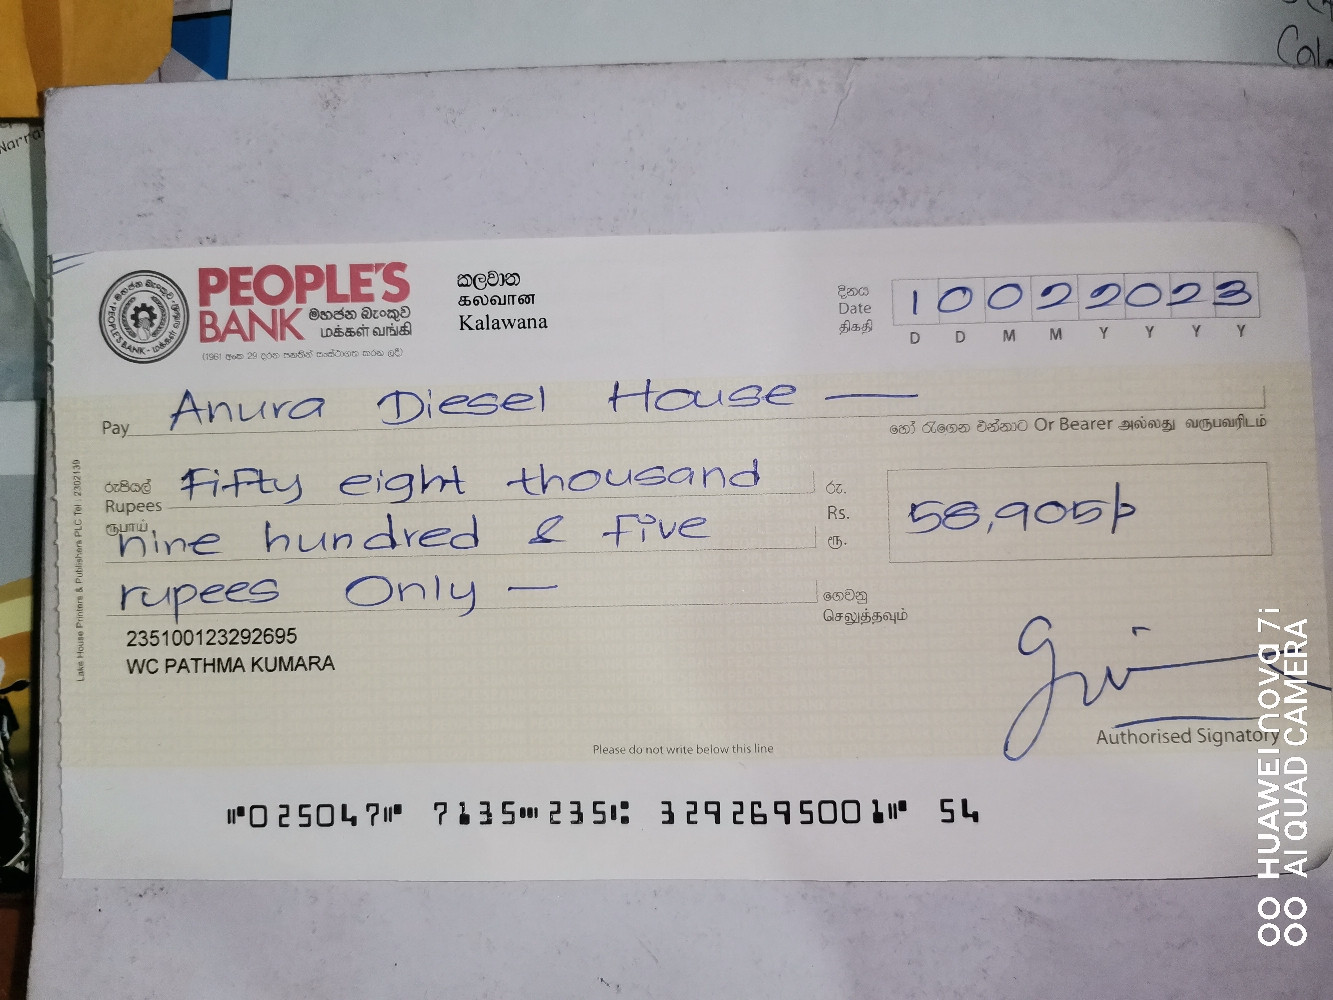 Narra
Cal
PEOPLE'S
BANK මහජන බැංකුව
மக்கள் வங்கி
(1961 අංක 29 දරන පනතින් සංස්ථාගත කරන ලදී)
කලවාන
கலவான
Kalawana
දිනය
Date
திகதி
10022023
D D M M Y Y Y Y
Pay Anura Diesel House —
හෝ රැගෙන එන්නාට Or Bearer அல்லது வருபவரிடம்
රුපියල් Fifty eight thousand
Rupees
ரூபாய் nine hundred & five
rupees Only —
රු.
Rs. 58,905/-
ரூ.
ගෙවනු
செலுத்தவும்
235100123292695
WC PATHMA KUMARA
Authorised Signatory
Please do not write below this line
⑈025047⑈ 7135⑉235⑆ 3292695001⑈ 54
Lake House Printers & Publishers PLC Tel : 2302139
HUAWEI nova 7i
AI QUAD CAMERA